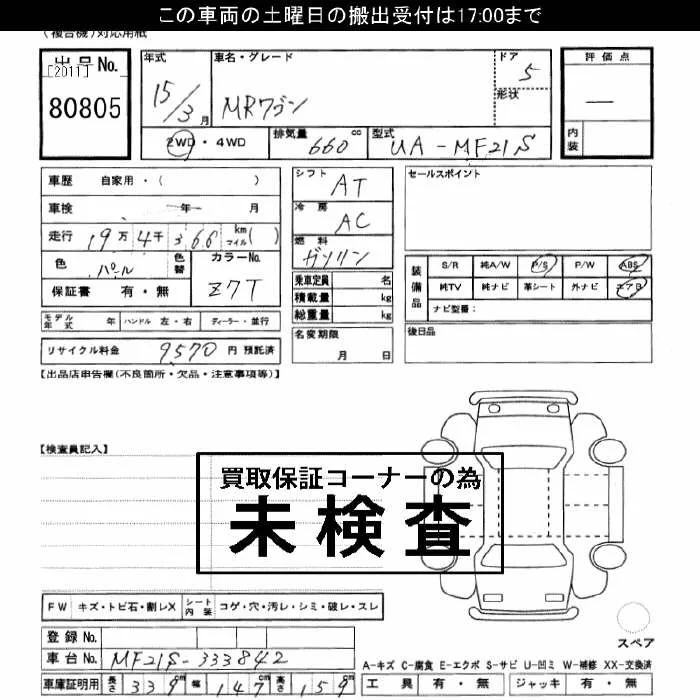 この車両の土曜日の搬出受付は17:00まで
(複合機)対応用紙
出品No.
[2011]
80805
年式
15/3月
車名・グレード
MRワゴン
ドア
5
形状
評価点
―
内装
2WD・4WD
排気量 660 cc
型式 UA-MF21S
車歴 自家用・( )
車検 年 月
走行 19万4千366 km マイル( )
色 パール
色替
カラーNo. Z7T
保証書 有・無
モデル年式 年 ハンドル 左・右 ディーラー・並行
リサイクル料金 9570 円 預託済
シフト AT
冷房 AC
燃料 ガソリン
乗車定員 名
積載量 kg
総重量 kg
名変期限
月 日
セールスポイント
装備品
S/R 純A/W P/S P/W ABS
純TV 純ナビ 革シート 外ナビ エアB
ナビ型番:
後日品
【出品店申告欄(不良箇所・欠品・注意事項等)】
【検査員記入】
買取保証コーナーの為
未検査
FW キズ・トビ石・割レX シート内装 コゲ・穴・汚レ・シミ・破レ・スレ
登録No.
車台No. MF21S-333842
車庫証明用 長さ 339cm 幅 147cm 高さ 159cm
スペア
A-キズ C-腐食 E-エクボ S-サビ U-凹ミ W-補修 XX-交換済
工具 有・無 ジャッキ 有・無